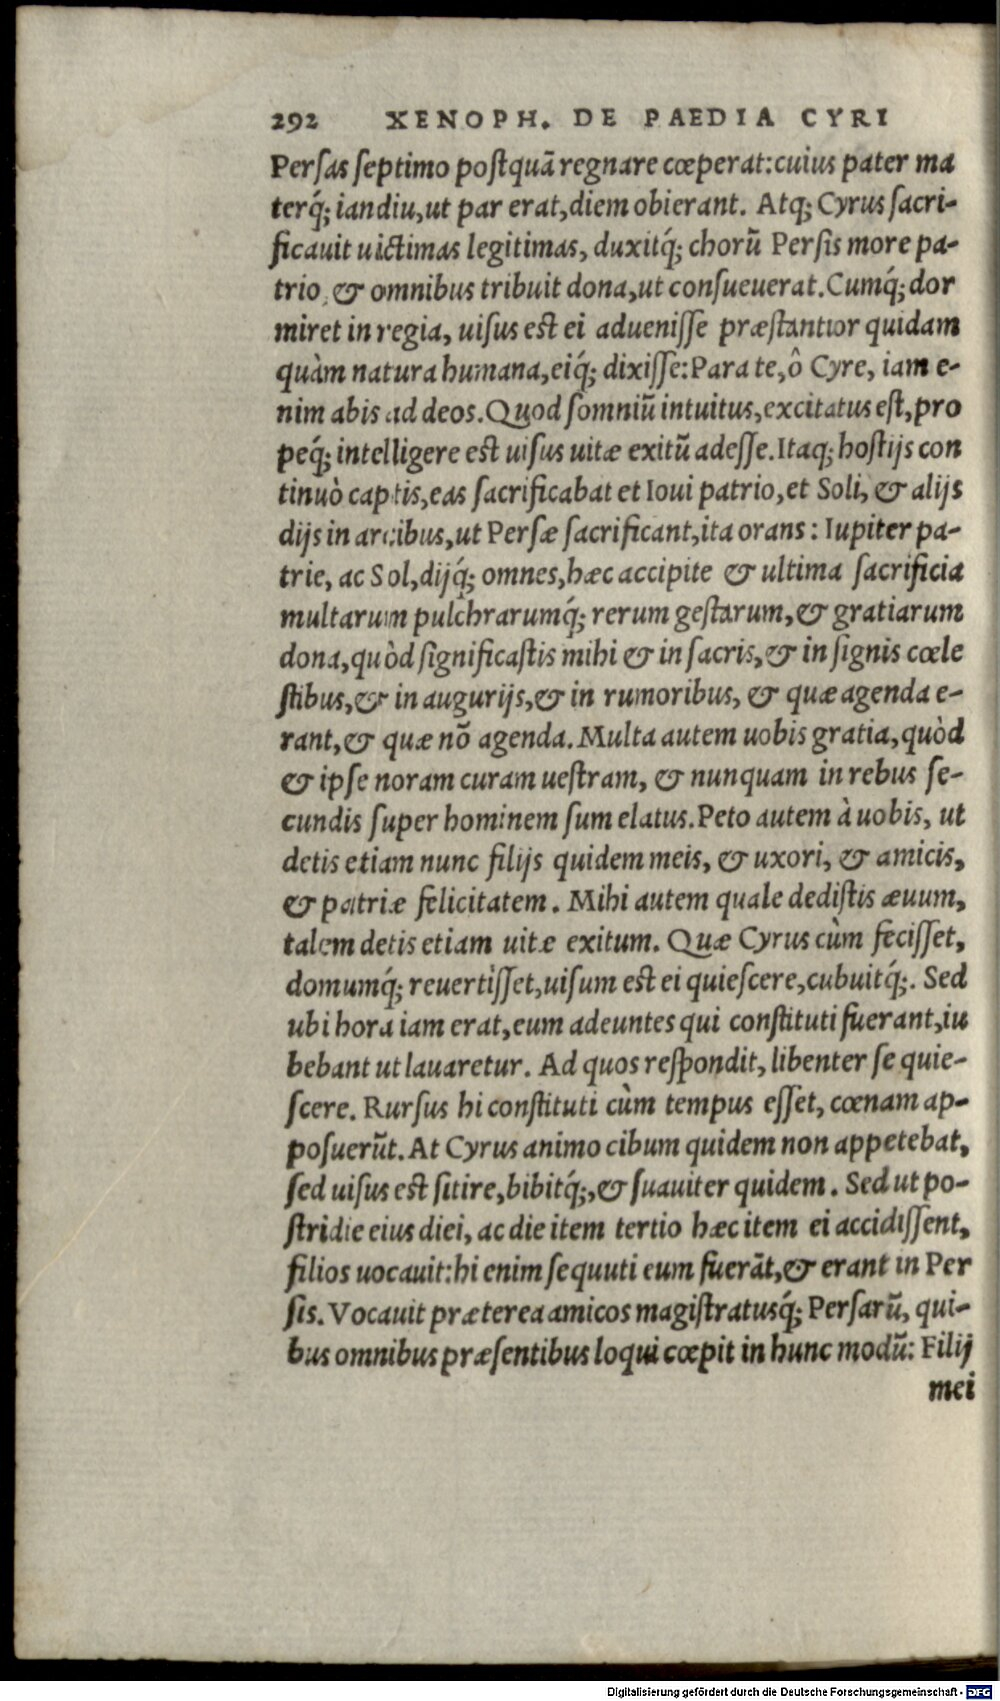 292 XENOPH. DE PAEDIA CYRI
Persas septimo postquā regnare cœperat: cuius pater ma
terq́; iandiu, ut par erat, diem obierant. Atq; Cyrus sacri-
ficauit uictimas legitimas, duxitq́; chorū Persis more pa-
trio, & omnibus tribuit dona, ut consueuerat. Cumq́; dor
miret in regia, uisus est ei aduenisse præstantior quidam
quàm natura humana, eiq́; dixisse: Para te, ô Cyre, iam e-
nim abis ad deos. Quod somniū intuitus, excitatus est, pro
peq́; intelligere est uisus uitæ exitū adesse. Itaq; hostijs con
tinuò captis, eas sacrificabat et Ioui patrio, et Soli, & alijs
dijs in arcibus, ut Persæ sacrificant, ita orans: Iupiter pa-
trie, ac Sol, dijq́; omnes, hæc accipite & ultima sacrificia
multarum pulchrarumq́; rerum gestarum, & gratiarum
dona, quòd significastis mihi & in sacris, & in signis cœle
stibus, & in augurijs, & in rumoribus, & quæ agenda e-
rant, & quæ nō agenda. Multa autem uobis gratia, quòd
& ipse noram curam uestram, & nunquam in rebus se-
cundis super hominem sum elatus. Peto autem à uobis, ut
detis etiam nunc filijs quidem meis, & uxori, & amicis,
& patriæ felicitatem. Mihi autem quale dedistis æuum,
talem detis etiam uitæ exitum. Quæ Cyrus cùm fecisset,
domumq́; reuertisset, uisum est ei quiescere, cubuitq́;. Sed
ubi hora iam erat, eum adeuntes qui constituti fuerant, iu
bebant ut lauaretur. Ad quos respondit, libenter se quie-
scere. Rursus hi constituti cùm tempus esset, cœnam ap-
posuerūt. At Cyrus animo cibum quidem non appetebat,
sed uisus est sitire, bibitq́;, & suauiter quidem. Sed ut po-
stridie eius diei, ac die item tertio hæc item ei accidissent,
filios uocauit: hi enim sequuti eum fuerāt, & erant in Per
sis. Vocauit præterea amicos magistratusq́; Persarū, qui-
bus omnibus præsentibus loqui cœpit in hunc modū: Filij
mei
Digitalisierung gefördert durch die Deutsche Forschungsgemeinschaft - DFG